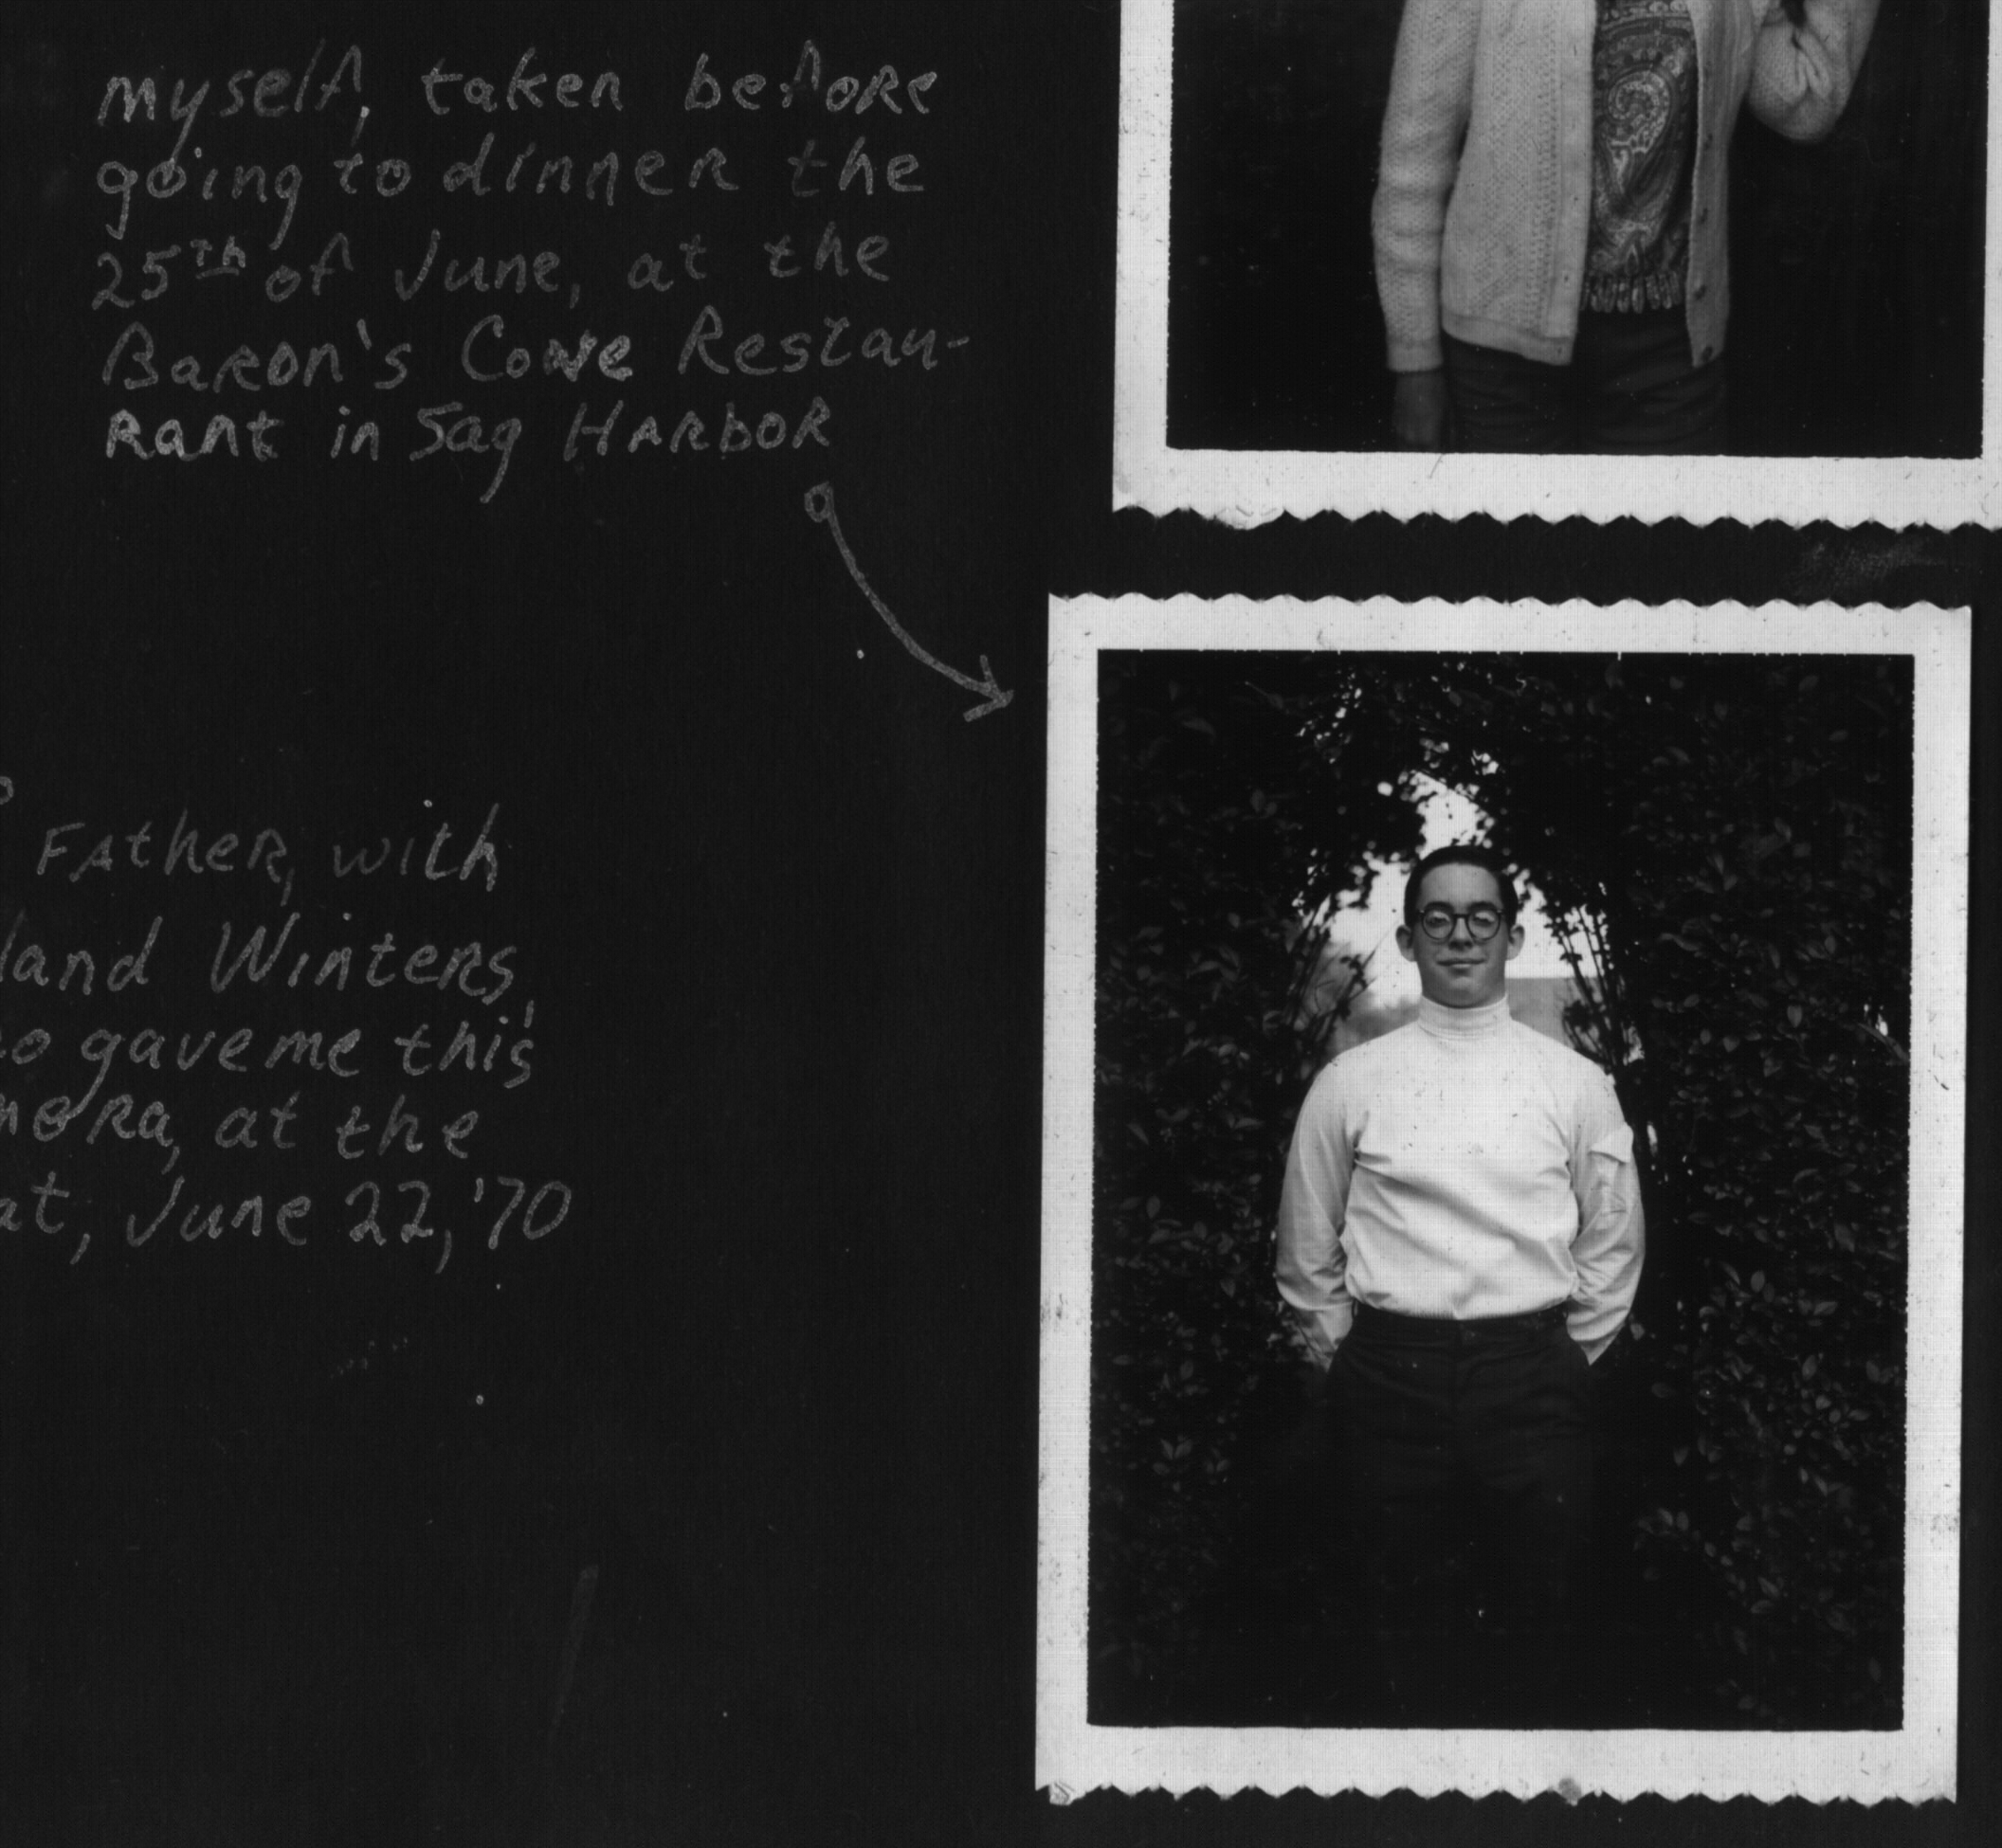 myself, taken before
going to dinner the
25th of June, at the
Baron's Cove Restau-
rant in Sag Harbor
Father, with
land Winters,
o gave me this
mera, at the
at, June 22, '70